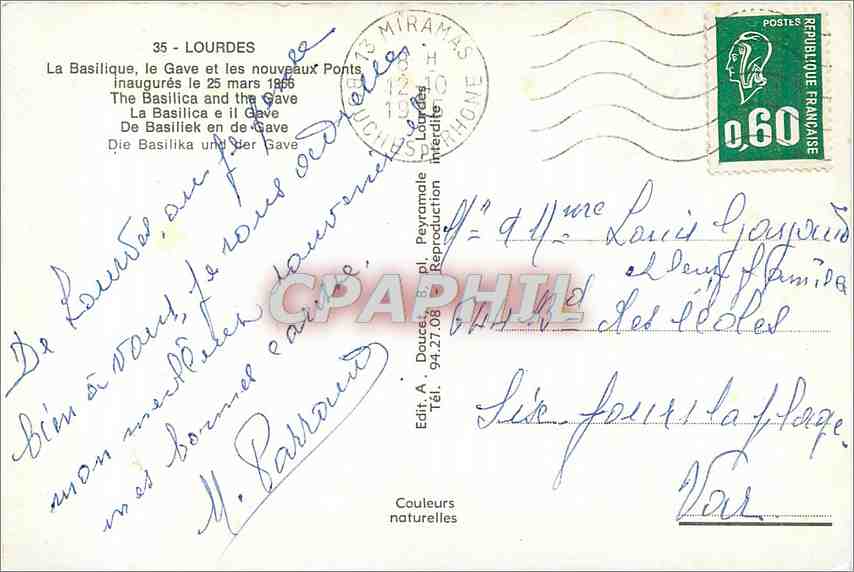 35 - LOURDES
La Basilique, le Gave et les nouveaux Ponts
inaugurés le 25 mars 1956
The Basilica and the Gave
La Basilica e il Gave
De Basiliek en de Gave
Die Basilika und der Gave
De Lourdes, où je pense
bien à vous, je vous adresse
mon meilleur souvenir et
mes bonnes
M. Parraud
Edit. A. Doucet, 8, pl. Peyramale Lourdes
Tél. 94.27.08 - Reproduction interdite
Couleurs
naturelles
13 MIRAMAS
8 H
12-10
19
BOUCHES DU RHONE
POSTES
REPUBLIQUE FRANÇAISE
0,60
Mr & Mme Louis
et leur famille
Bd des écoles
Six-fours la plage
Var
CPAPHIL